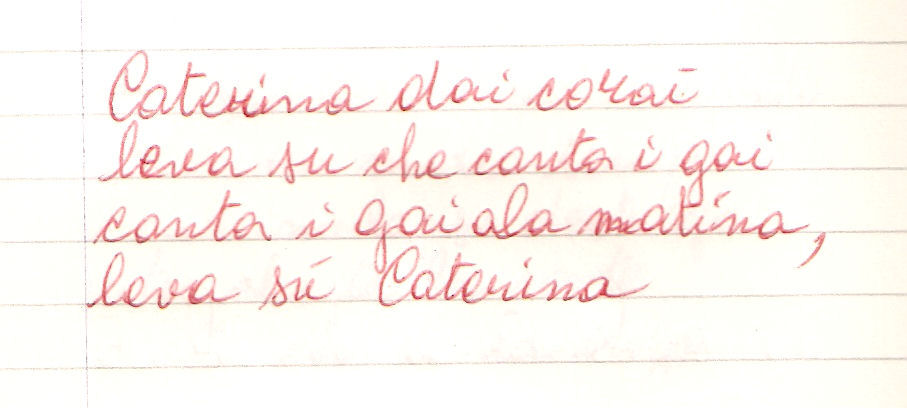 Caterina dai corai
leva su che canta i gai
canta i gai ala matina,
leva sú Caterina